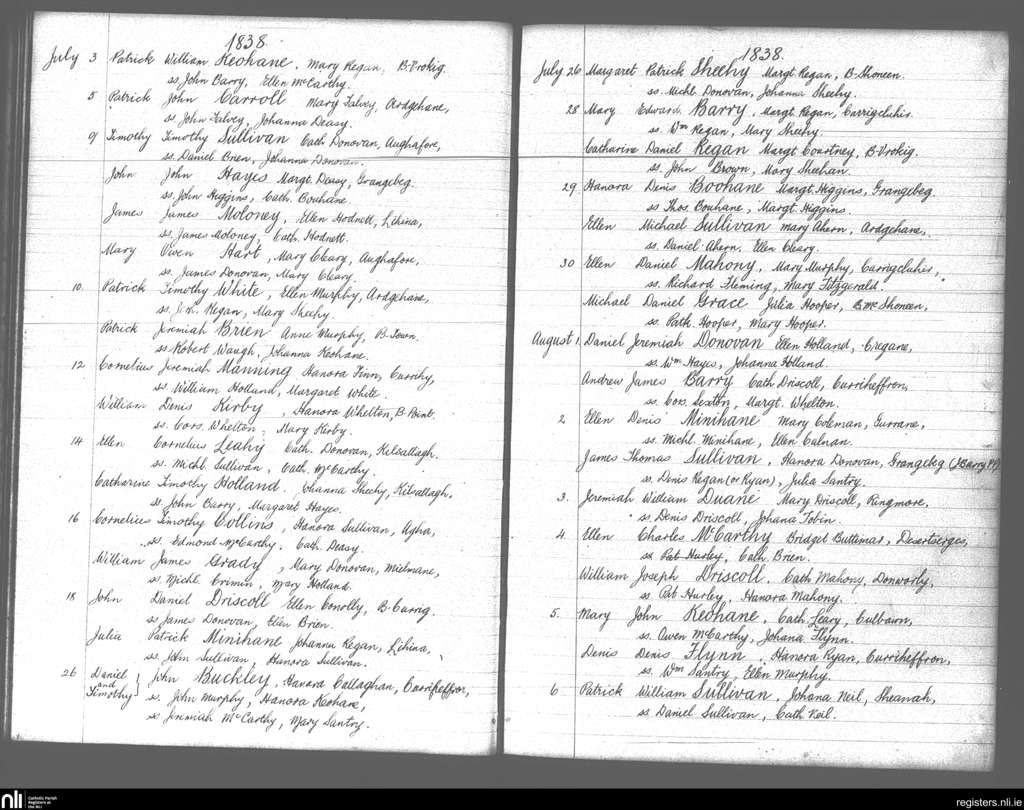 1838.
July 3 Patrick William Keohane, Mary Regan, B-Vrokig.
ss. John Barry, Ellen McCarthy.
5 Patrick John Carroll Mary Falvey, Ardgehane,
ss. John Falvey, Johanna Deasy.
9 Timothy Timothy Sullivan Cath Donovan, Aughafore,
ss. Daniel Brien, Johanna Donovan.
John John Hayes Margt. Deasy, Grangebeg.
ss. John Higgins, Cath. Bouhane.
James James Moloney, Ellen Hodnett, Lihina,
ss. James Moloney, Cath. Hodnett.
Mary Owen Hart, Mary Cleary, Aughafore,
ss. James Donovan, Mary Cleary.
10. Patrick Timothy White, Ellen Murphy, Ardgehane,
ss. Regan, Mary Sheehy.
Patrick Jeremiah Brien Anne Murphy, B. Town.
ss Robert Waugh, Johanna Keohane.
12 Cornelius Jeremiah Manning Hanora Finn, Currihy,
ss William Holland, Margaret White.
William Denis Kirby, Hanora Whelton, B. Point.
ss. Cors. Whelton, Mary Kirby.
14 Ellen Cornelius Leahy Cath. Donovan, Kilsallagh.
ss. Michl. Sullivan, Cath. McCarthy.
Catharine Timothy Holland. Johanna Sheehy, Kilsallagh,
ss. John Barry, Margaret Hayes.
16 Cornelius Timothy Collins, Hanora Sullivan, Agha,
ss. Edmond McCarthy, Cath. Deasy.
William James Grady, Mary Donovan, Mielmane,
ss. Michl. Crimin, Mary Holland.
18 John Daniel Driscoll Ellen Conolly, B. Carrig.
ss James Donovan, Ellen Brien.
Julia Patrick Minihane Johanna Regan, Lihina,
ss. John Sullivan, Hanora Sullivan.
26 Daniel and Timothy } John Buckley, Hanora Callaghan, Curriheffron,
ss. John Murphy, Hanora Keohane,
ss Jeremiah McCarthy, Mary Santry.
1838.
July 26 Margaret Patrick Sheehy Margt Regan, B-Shoneen.
ss. Michl. Donovan, Johanna Sheehy.
28 Mary Edward Barry, Margt Regan, Carrigcluhir.
ss. Wm Regan, Mary Sheehy.
Catharine Daniel Regan Margt Courtney, B-Vrokig.
ss. John Brown, Mary Sheehan.
29 Hanora Denis Boohane Margt Higgins, Grangebeg.
ss Thos Bouhane, Margt. Higgins.
Ellen Michael Sullivan Mary Ahern, Ardgehane,
ss. Daniel Ahern, Ellen Cleary.
30 Ellen Daniel Mahony, Mary Murphy, Carrigcluhir,
ss. Richard Fleming, Mary Fitzgerald.
Michael Daniel Grace Julia Hooper, B.Mc Shoneen,
ss. Patk. Hooper, Mary Hooper.
August 1. Daniel Jeremiah Donovan Ellen Holland, Cregane,
ss. Wm Hayes, Johanna Holland.
Andrew James Barry Cath Driscoll, Curriheffron,
ss. Cors. Sexton, Margt. Whelton.
2 Ellen Denis Minihane Mary Coleman, Gurrane,
ss. Michl. Minihane, Ellen Calnan.
James Thomas Sullivan, Hanora Donovan, Grangebeg (J Barry PP)
ss. Denis Regan (or Ryan), Julia Santry.
3. Jeremiah William Duane Mary Driscoll, Ringmore.
ss. Denis Driscoll, Johana Tobin.
4. Ellen Charles McCarthy Bridget Buttimar, Desertserges,
ss Pat Hurley, Cath. Brien.
William Joseph Driscoll. Cath Mahony, Donworly,
ss Pat Hurley, Hanora Mahony.
5. Mary John Keohane, Cath. Leary, Culbawn,
ss. Owen McCarthy, Johana Flynn.
Denis Denis Flynn, Hanora Ryan, Curriheffron,
ss. Wm Santry, Ellen Murphy.
6 Patrick William Sullivan, Johana Neil, Sheanah,
ss. Daniel Sullivan, Cath. Neil.
nli Catholic Parish Registers at the NLI
registers.nli.ie